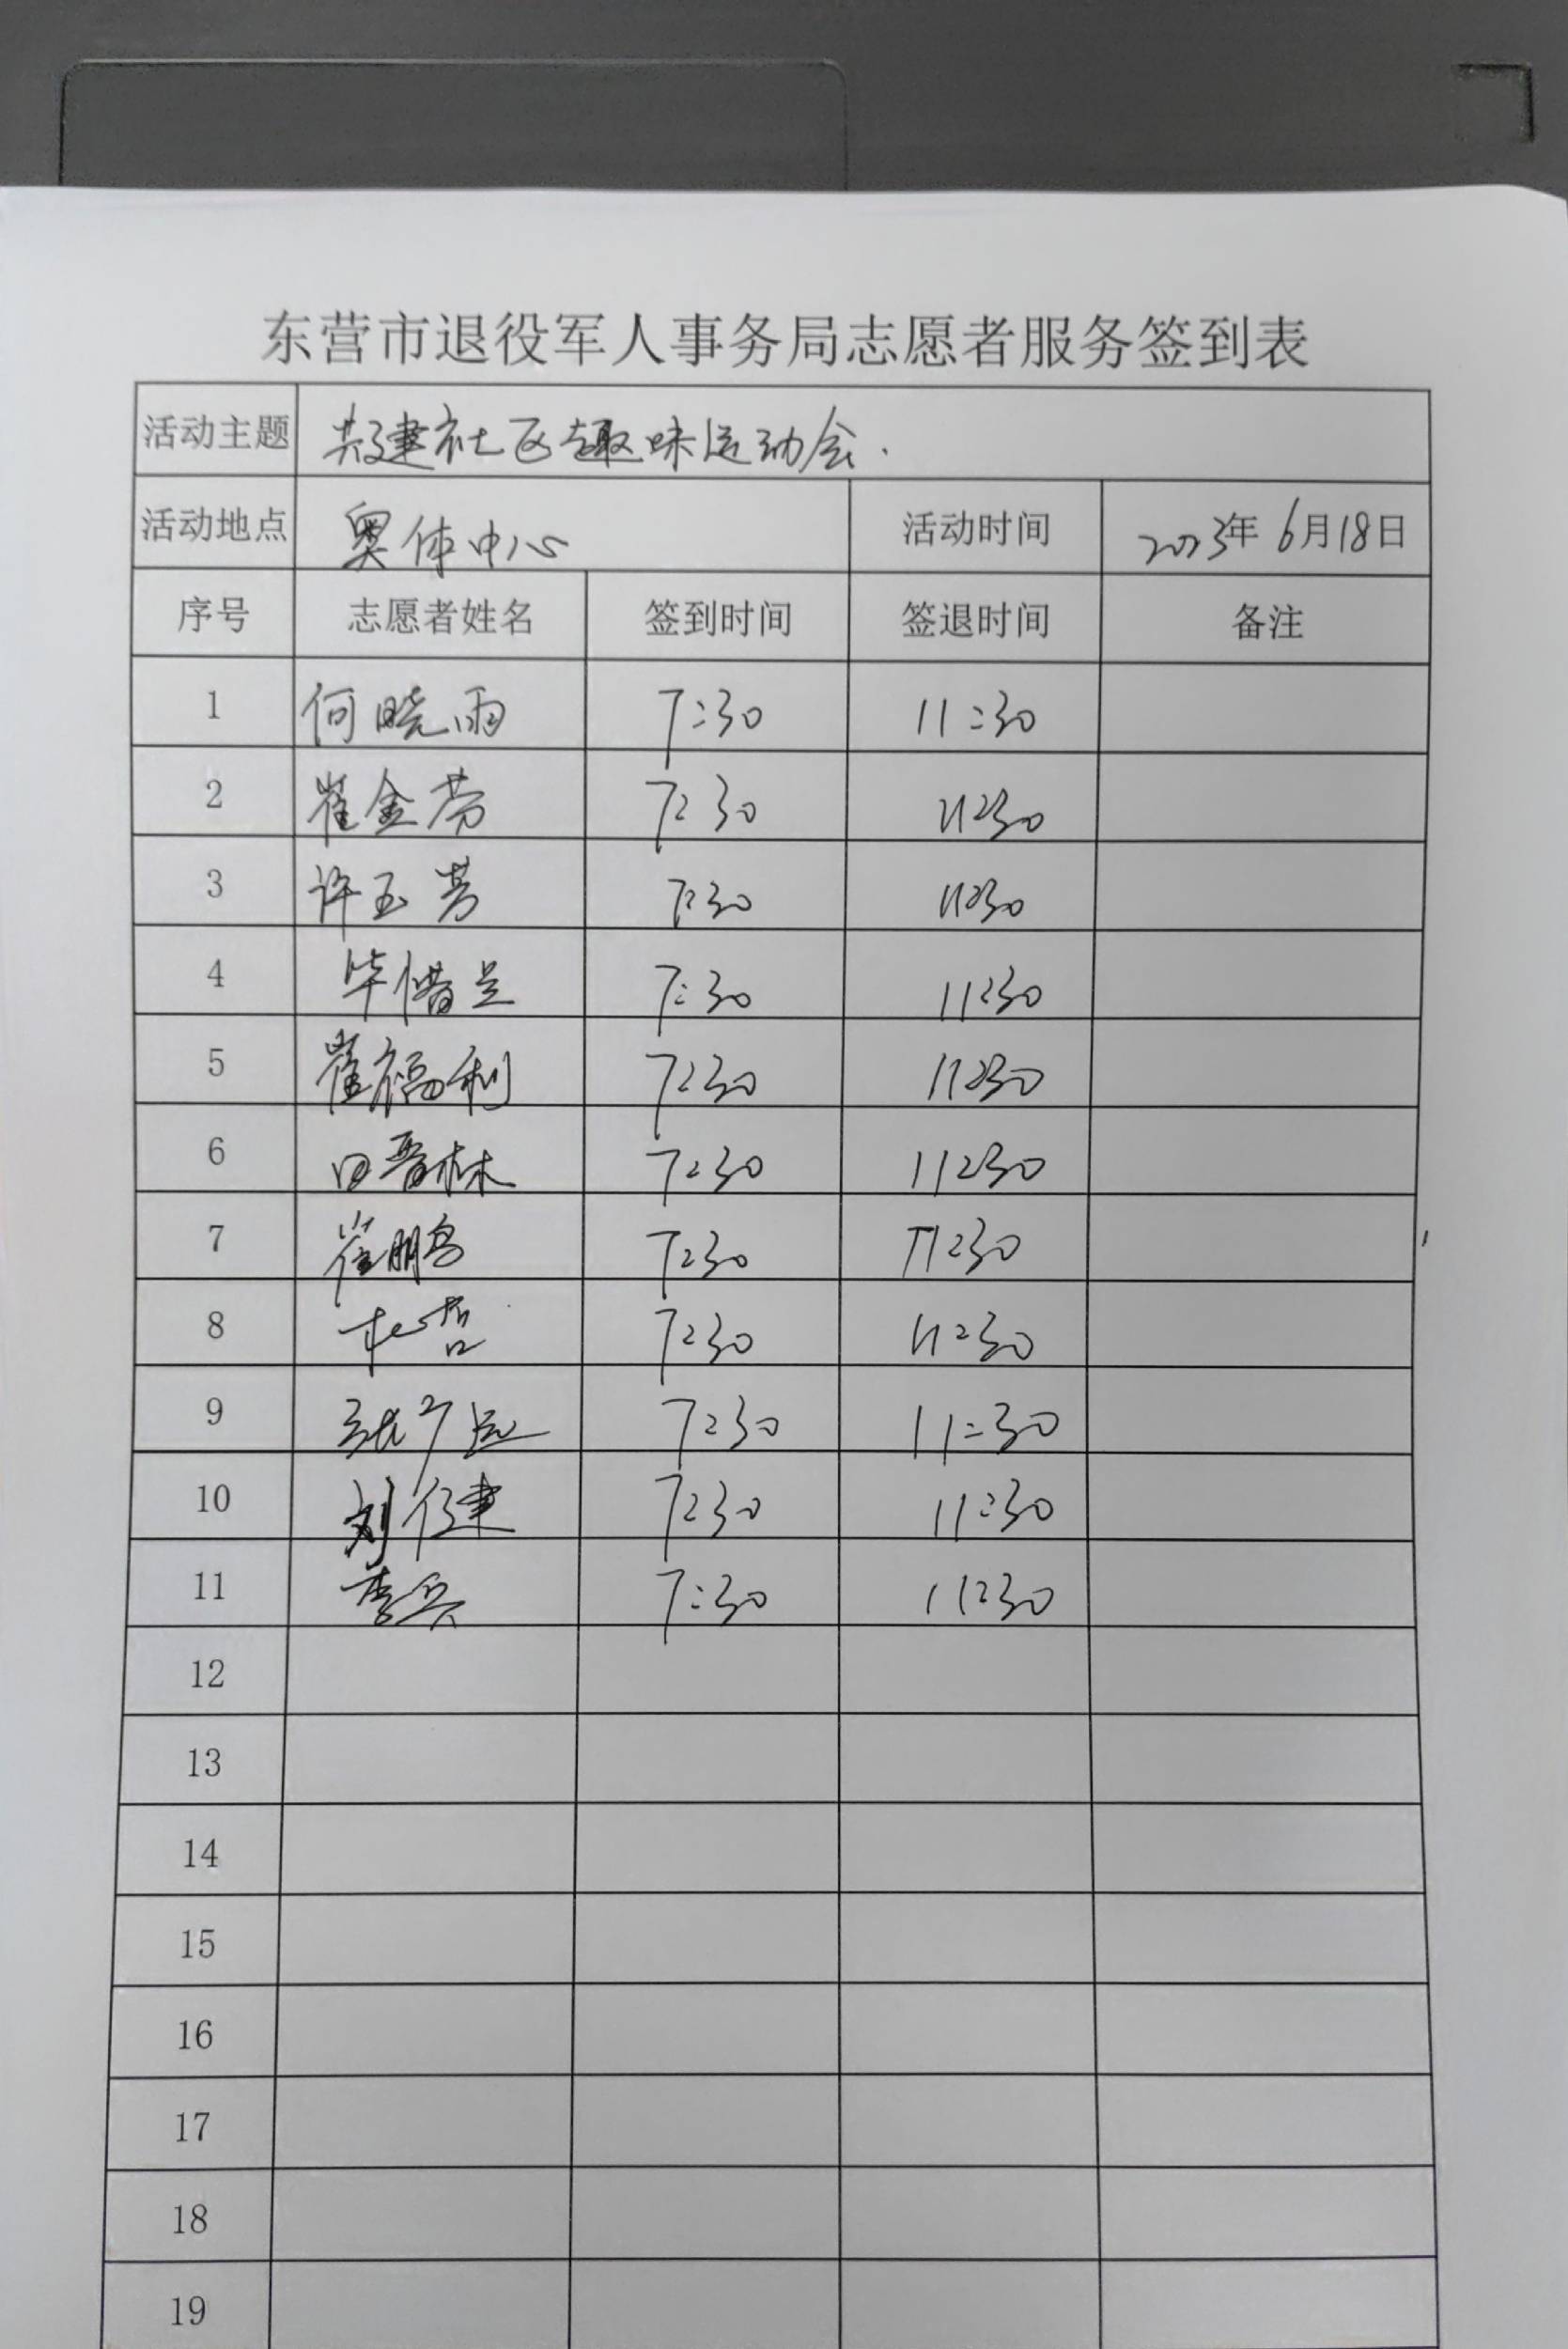 东营市退役军人事务局志愿者服务签到表
活动主题 共建社区趣味运动会.
活动地点 奥体中心 活动时间 2023年6月18日
序号 志愿者姓名 签到时间 签退时间 备注
1 何晓雨 7:30 11:30
2 崔金芳 7:30 11:30
3 许玉芳 7:30 11:30
4 毕惜呈 7:30 11:30
5 崔福利 7:30 11:30
6 田晋林 7:30 11:30
7 崔鹏鸟 7:30 11:30
8 杜哲 7:30 11:30
9 张广运 7:30 11:30
10 刘健 7:30 11:30
11 李兵 7:30 11:30
12
13
14
15
16
17
18
19